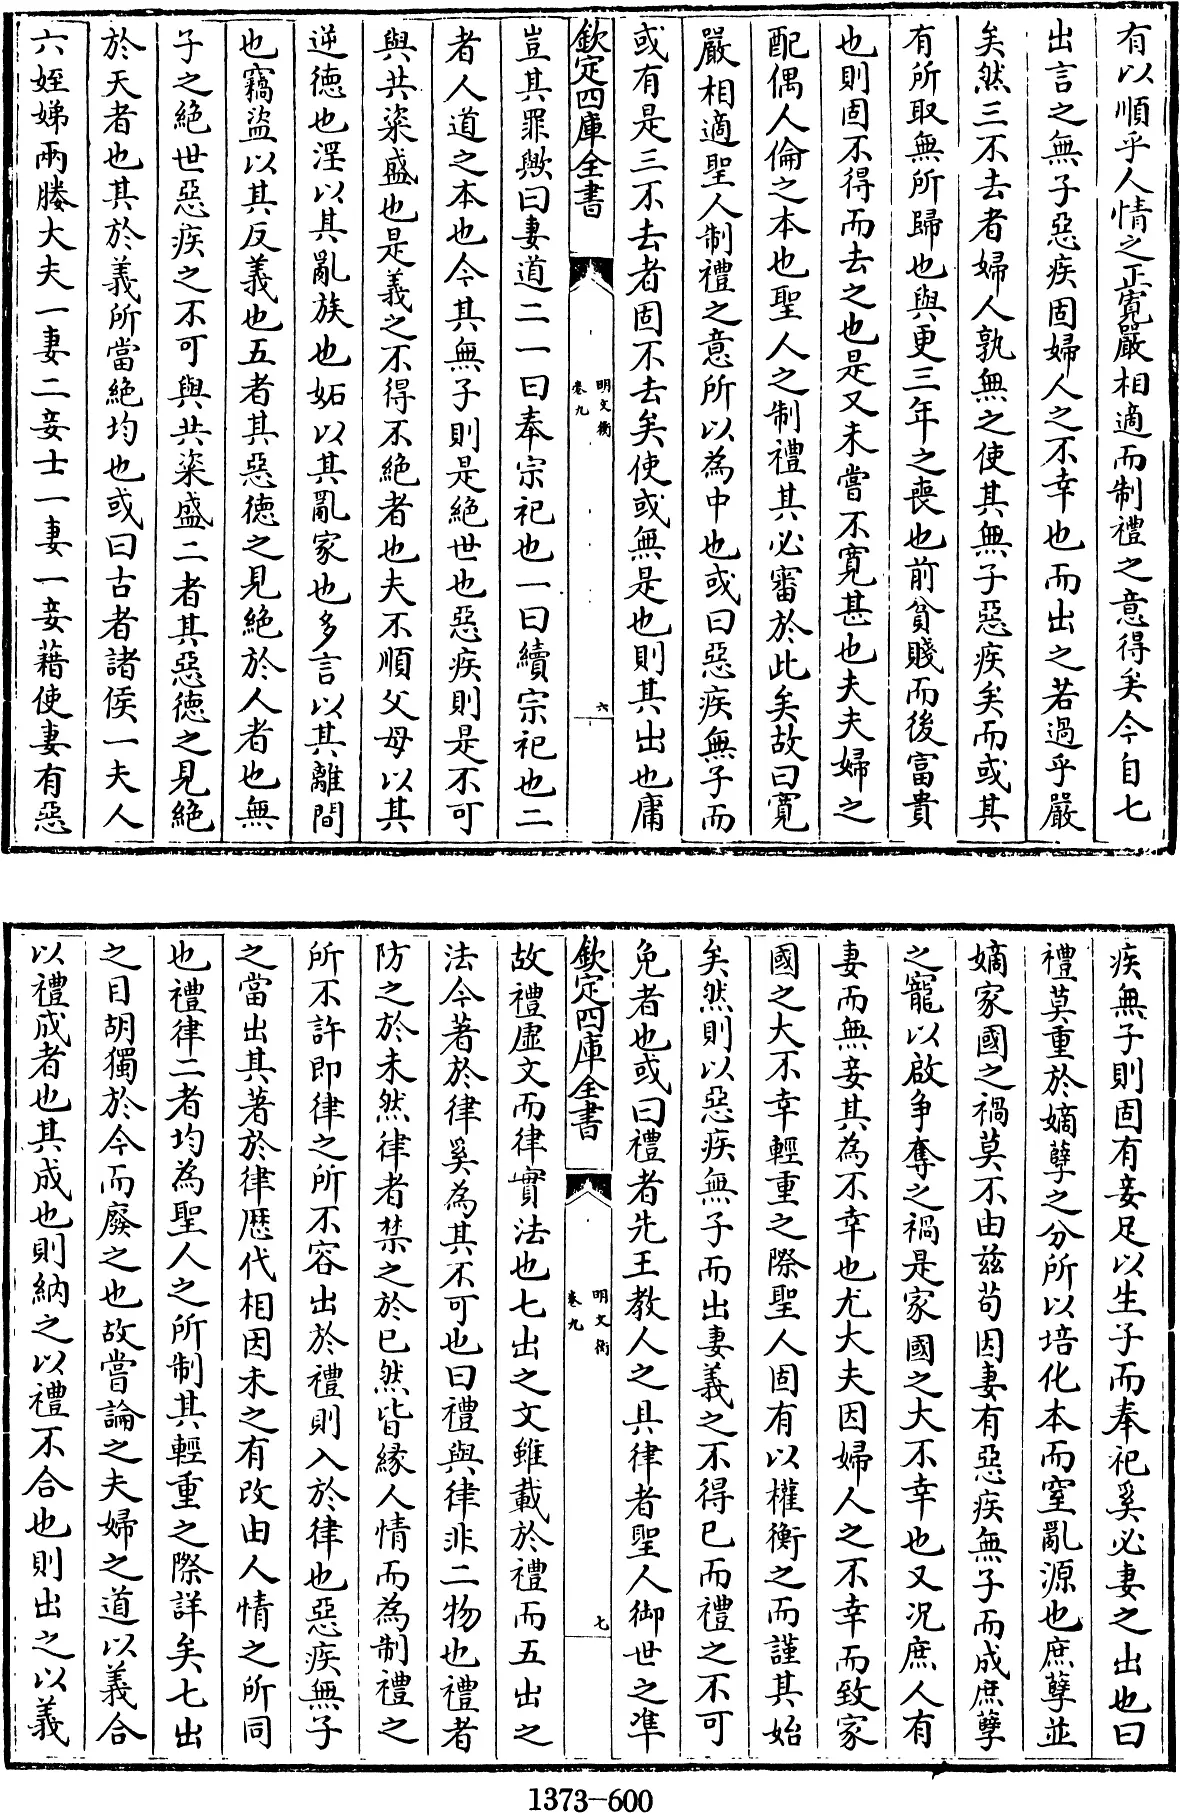 有以順乎人情之正寛嚴相適而制禮之意得矣今自七
出言之無子惡疾固婦人之不幸也而出之若過乎嚴
矣然三不去者婦人孰無之使其無子惡疾矣而或其
有所取無所歸也與更三年之喪也前貧賤而後富貴
也則固不得而去之也是又未嘗不寛甚也夫夫婦之
配偶人倫之本也聖人之制禮其必審於此矣故曰寛
嚴相適聖人制禮之意所以為中也或曰惡疾無子而
或有是三不去者固不去矣使或無是也則其出也庸
欽定四庫全書
明文衡
卷九
六
豈其罪歟曰妻道二一曰奉宗祀也一曰續宗祀也二
者人道之本也今其無子則是絶世也惡疾則是不可
與共粢盛也是義之不得不絶者也夫不順父母以其
逆徳也淫以其亂族也妬以其亂家也多言以其離間
也竊盜以其反義也五者其惡徳之見絶於人者也無
子之絶世惡疾之不可與共粢盛二者其惡徳之見絶
於天者也其於義所當絶均也或曰古者諸侯一夫人
六姪娣兩媵大夫一妻二妾士一妻一妾藉使妻有惡
疾無子則固有妾足以生子而奉祀奚必妻之出也曰
禮莫重於嫡孽之分所以培化本而窒亂源也庶孽並
嫡家國之禍莫不由兹苟因妻有惡疾無子而成庶孽
之寵以啟争奪之禍是家國之大不幸也又況庶人有
妻而無妾其為不幸也尤大夫因婦人之不幸而致家
國之大不幸輕重之際聖人固有以權衡之而謹其始
矣然則以惡疾無子而出妻義之不得已而禮之不可
免者也或曰禮者先王教人之具律者聖人御世之準
欽定四庫全書
明文衡
卷九
七
故禮虛文而律實法也七出之文雖載於禮而五出之
法今著於律奚為其不可也曰禮與律非二物也禮者
防之於未然律者禁之於已然皆縁人情而為制禮之
所不許即律之所不容出於禮則入於律也惡疾無子
之當出其著於律歴代相因未之有改由人情之所同
也禮律二者均為聖人之所制其輕重之際詳矣七出
之目胡獨於今而廢之也故嘗論之夫婦之道以義合
以禮成者也其成也則納之以禮不合也則出之以義
1373-600